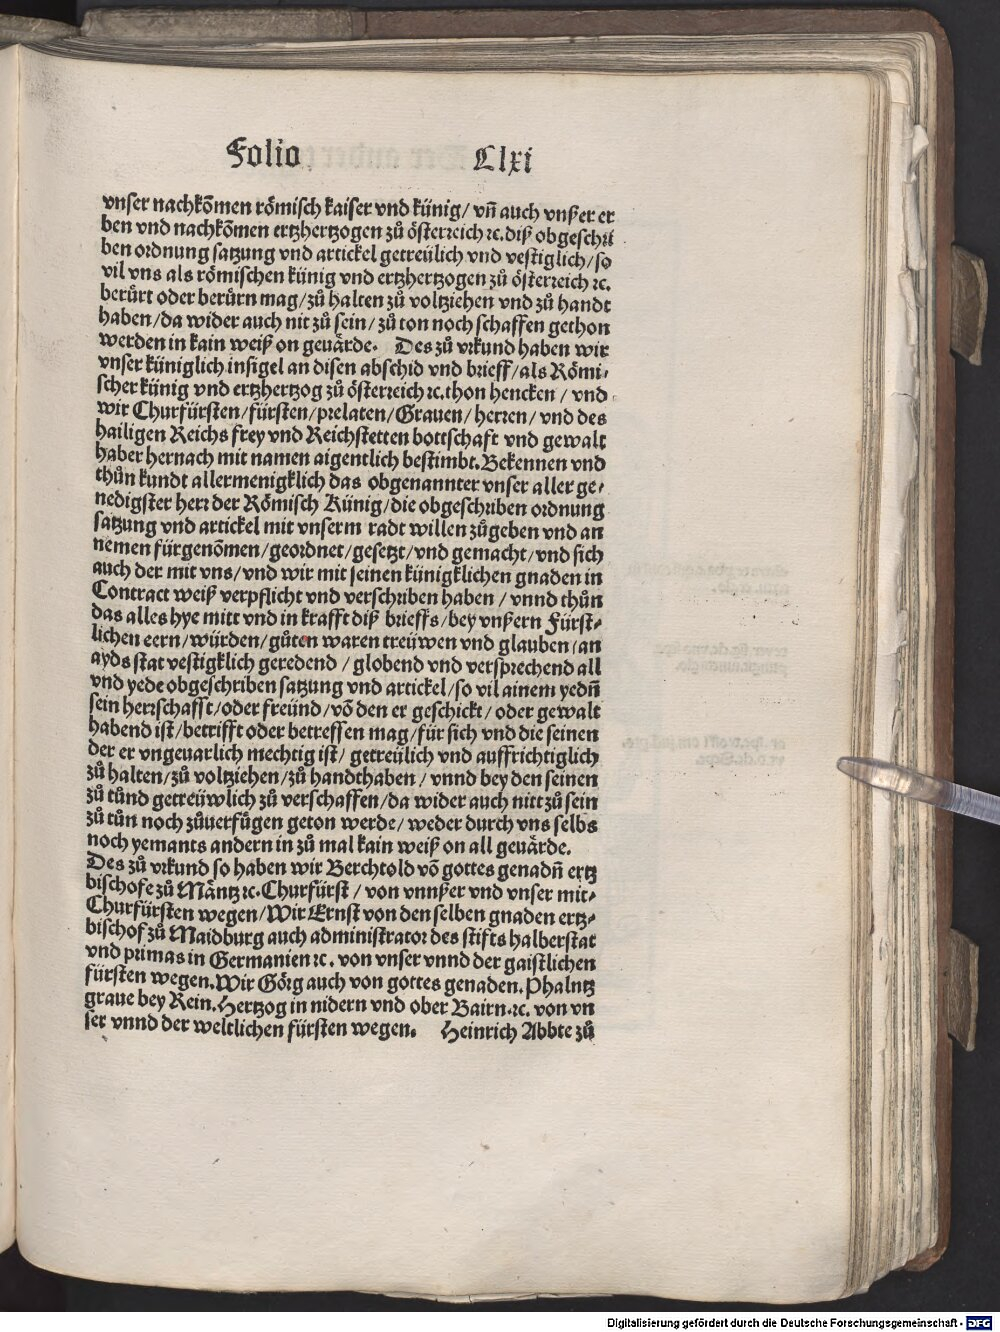 Folio Clxi
vnser nachkõmen römisch kaiser vnd künig/ vñ auch vnßer er
ben vnd nachkõmen ertzhertzogen zů österreich ꝛc. diß obgeschri
ben ordnung satzung vnd artickel getreülich vnd vestiglich/ so
vil vns als römischen künig vnd ertzhertzogen zů österreich ꝛc.
berürt oder berürn mag/ zů halten zů voltziehen vnd zů handt
haben/ da wider auch nit zů sein/ zů ton noch schaffen gethon
werden in kain weiß on geuärde. Des zů vrkund haben wir
vnser küniglich insigel an disen abschid vnd brieff/ als Römi⸗
scher künig vnd ertzhertzog zů österreich ꝛc. thon hencken / vnd
wir Churfürsten/ fürsten/ prelaten/ Grauen/ herren/ vnd des
hailigen Reichs frey vnd Reichstetten bottschaft vnd gewalt
haber hernach mit namen aigentlich bestimbt. Bekennen vnd
thůn kundt allermenigklich das obgenannter vnser aller ge⸗
nedigster herr der Römisch Künig/ die obgeschriben ordnung
satzung vnd artickel mit vnserm radt willen zůgeben vnd an
nemen fürgenõmen/ geordnet/ gesetzt/ vnd gemacht/ vnd sich
auch der mit vns/ vnd wir mit seinen künigklichen gnaden in
Contract weiß verpflicht vnd verschriben haben / vnnd thůn
das alles hye mitt vnd in krafft diß brieffs/ bey vnßern Fürst⸗
lichen eern/ würden/ gůten waren treüwen vnd glauben/ an
ayds stat vestigklich geredend / globend vnd versprechend all
vnd yede obgeschriben satzung vnd artickel/ so vil ainem yedñ
sein herrschafft/ oder freünd/ võ den er geschickt/ oder gewalt
habend ist/ betrifft oder betreffen mag/ für sich vnd die seinen
der er vngeuarlich mechtig ist/ getreülich vnd auffrichtiglich
zů halten/ zů voltziehen/ zů handthaben / vnnd bey den seinen
zů tůnd getreüwlich zů verschaffen/ da wider auch nitt zů sein
zů tůn noch zůuerfügen geton werde/ weder durch vns selbs
noch yemants andern in zů mal kain weiß on all geuärde.
Des zů vrkund so haben wir Berchtold võ gottes genadñ ertz
bischofe zů Mäntz ꝛc. Churfürst / von vnnßer vnd vnser mit⸗
Churfürsten wegen/ Wir Ernst von den selben gnaden ertz⸗
bischof zů Maidburg auch administrator des stifts halberstat
vnd primas in Germanien ꝛc. von vnser vnnd der gaistlichen
fürsten wegen. Wir Görg auch von gottes genaden. Phalntz
graue bey Rein. Hertzog in nidern vnd ober Bairn. ꝛc. von vn
ser vnnd der weltlichen fürsten wegen. Heinrich Abbte zů
Digitalisierung gefördert durch die Deutsche Forschungsgemeinschaft - DFG